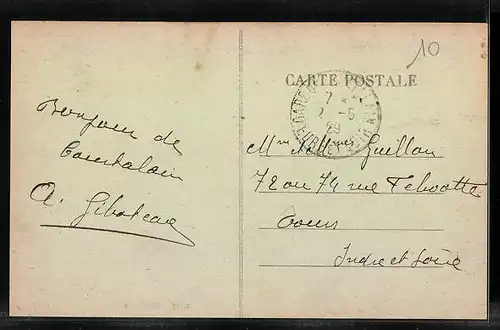 10
CARTE POSTALE
Bonjour de
Courtalain
A. Giboteau
Mme Guillon
72 ou 74 rue Febvotte
Tours
Indre et Loire